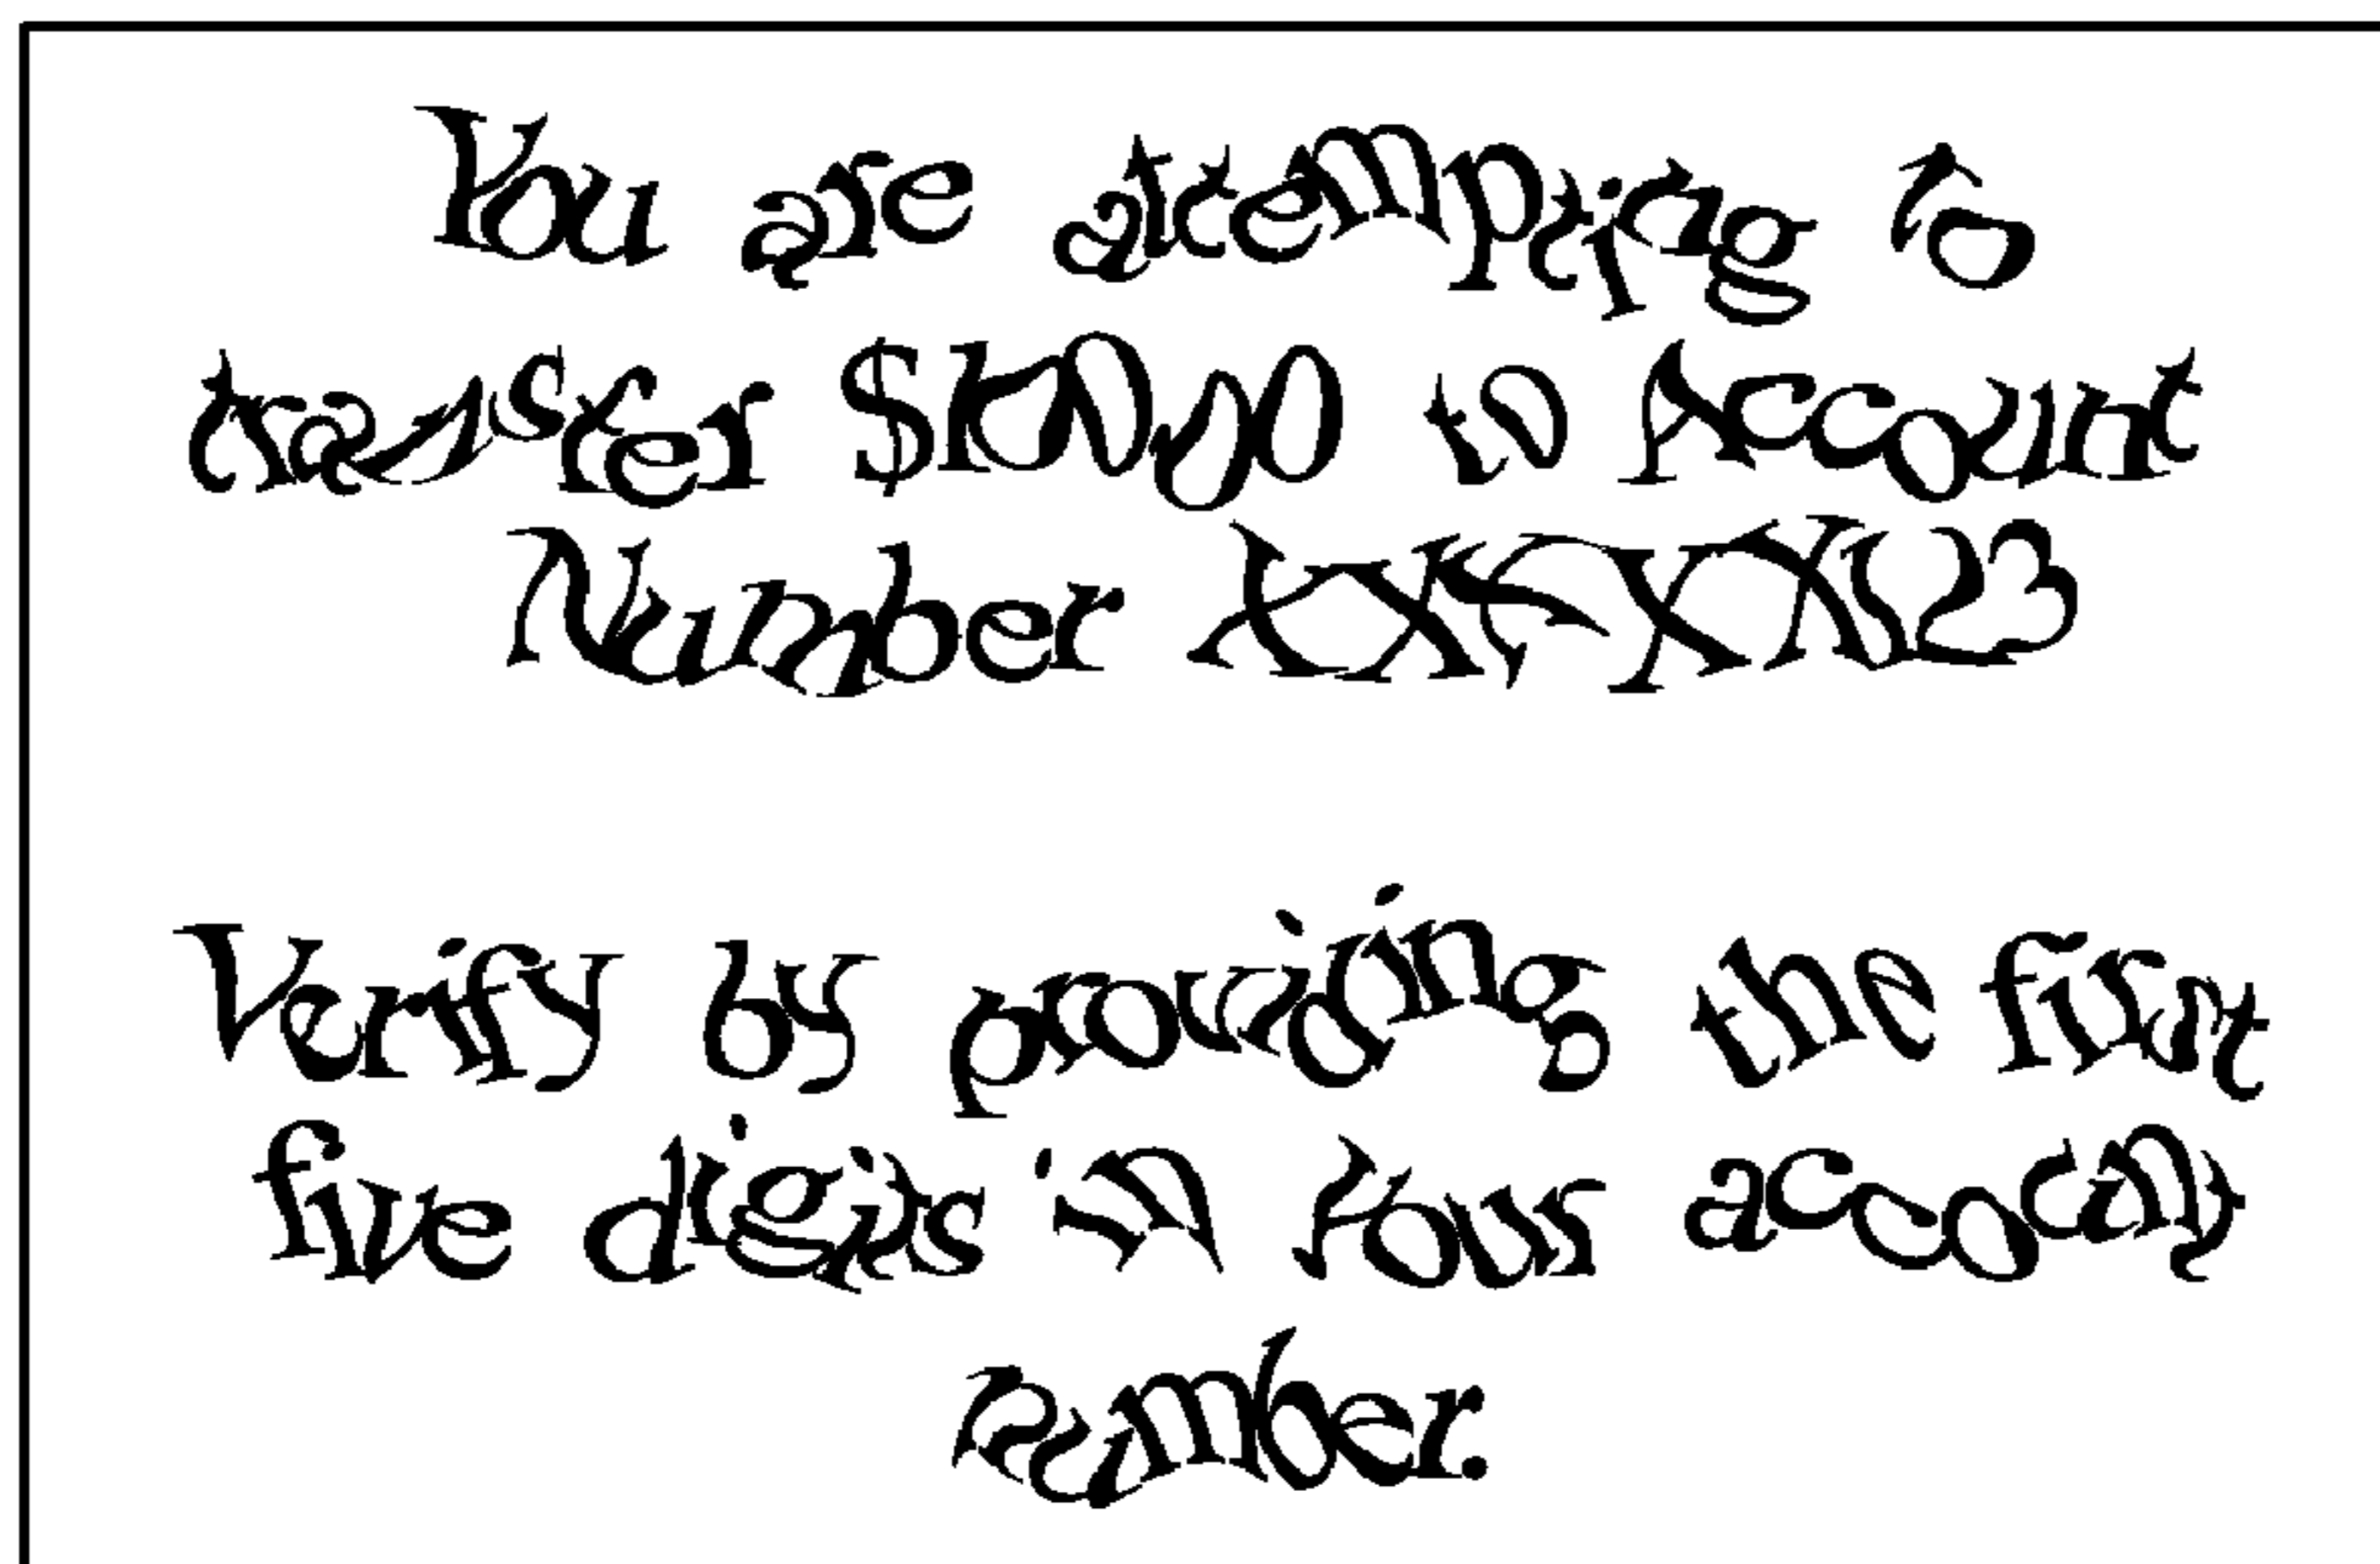 You are attempting to
transfer $10000 to Account
Number XXXXX123
Verify by providing the first
five digits in your account
number.